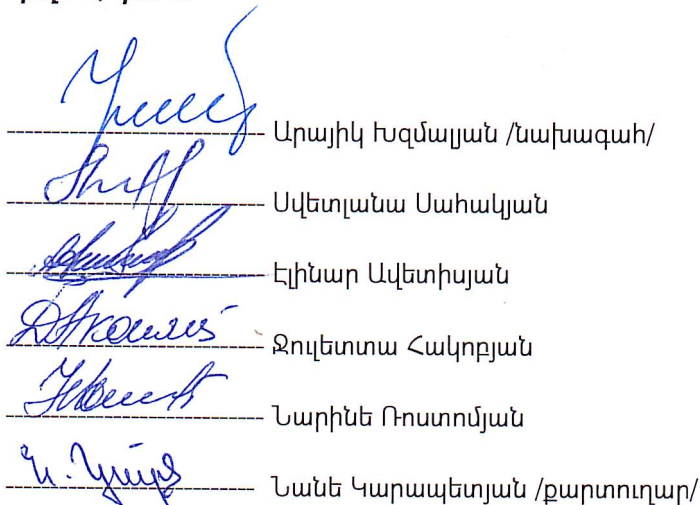 Արայիկ Խզմալյան /նախագահ/
Սվետլանա Սահակյան
Էլինար Ավետիսյան
Ջուլետտա Հակոբյան
Նարինե Ռոստոմյան
Նանե Կարապետյան /քարտուղար/